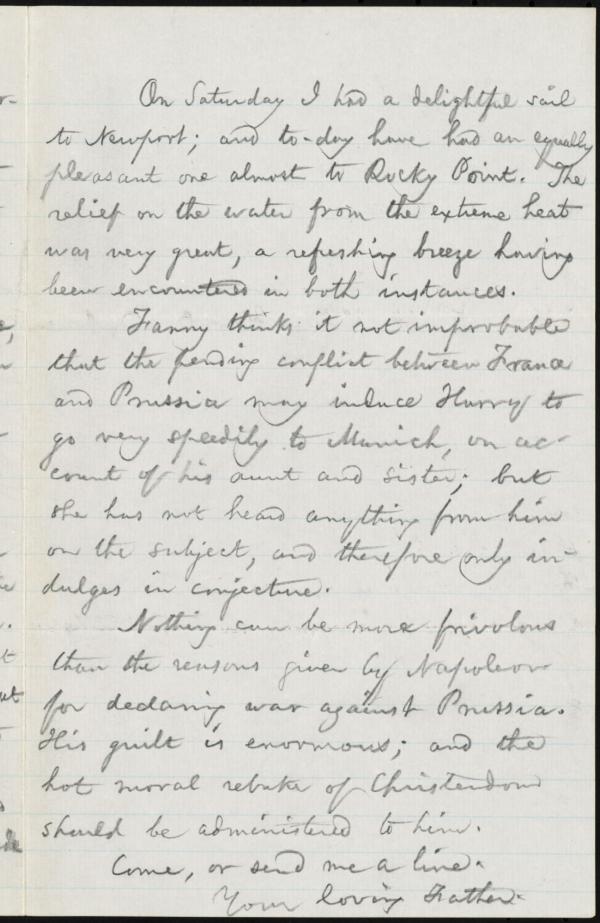 On Saturday I had a delightful sail
to Newport; and to-day have had an equally
pleasant one almost to Rocky Point. The
relief on the water from the extreme heat
was very great, a refreshing breeze having
been encountered in both instances.
Fanny thinks it not improbable
that the pending conflict between France
and Prussia may induce Harry to
go very speedily to Munich, on ac-
count of his aunt and sister; but
she has not heard anything from him
on the subject, and therefore only in-
dulges in conjecture.
Nothing can be more frivolous
than the reasons given by Napoleon
for declaring war against Prussia.
His guilt is enormous; and the
hot moral rebuke of Christendom
should be administered to him.
Come, or send me a line.
Your loving Father.